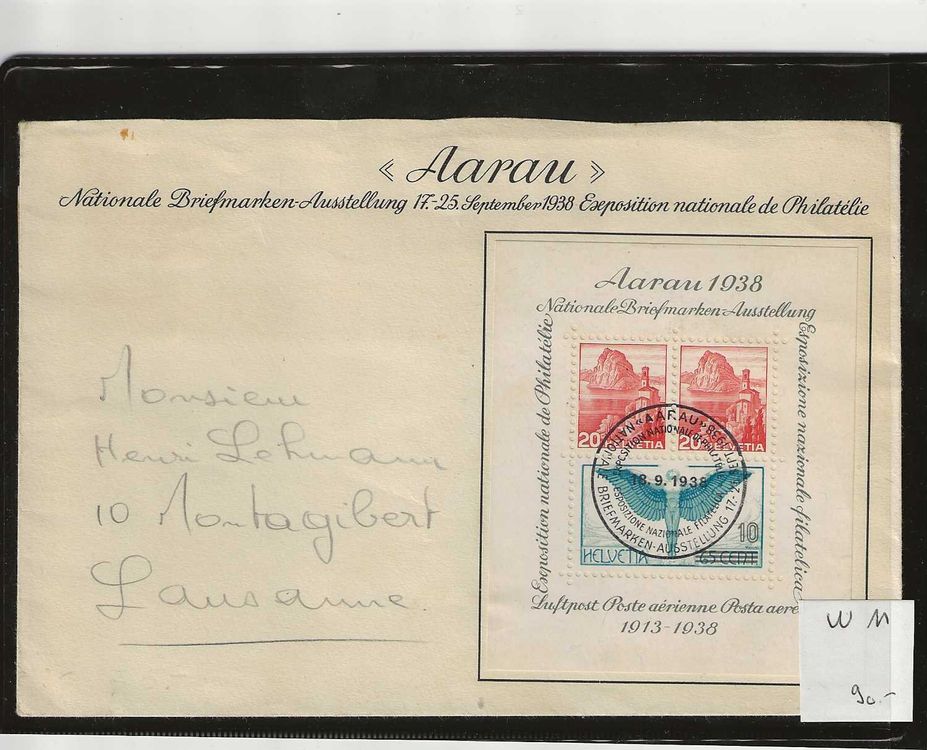 « Aarau »
Nationale Briefmarken-Ausstellung 17.-25. September 1938 Exposition nationale de Philatélie
Aarau 1938
Nationale Briefmarken-Ausstellung
Exposition nationale de Philatélie
Esposizione nazionale filatelica
20 HELVETIA
20 HELVETIA
«AARAU»
NATIONALE BRIEFMARKEN-AUSSTELLUNG 17.-25. SEPT. 1938
EXPOSITION NATIONALE DE PHILATÉLIE
18.9.1938
ESPOSIZIONE NAZIONALE FILATELICA
10
HELVETIA 65 CENT
Luftpost Poste aérienne Posta aere
1913-1938
Monsieur
Henri Lehmann
10 Montagibert
Lausanne.
W 11
90.-